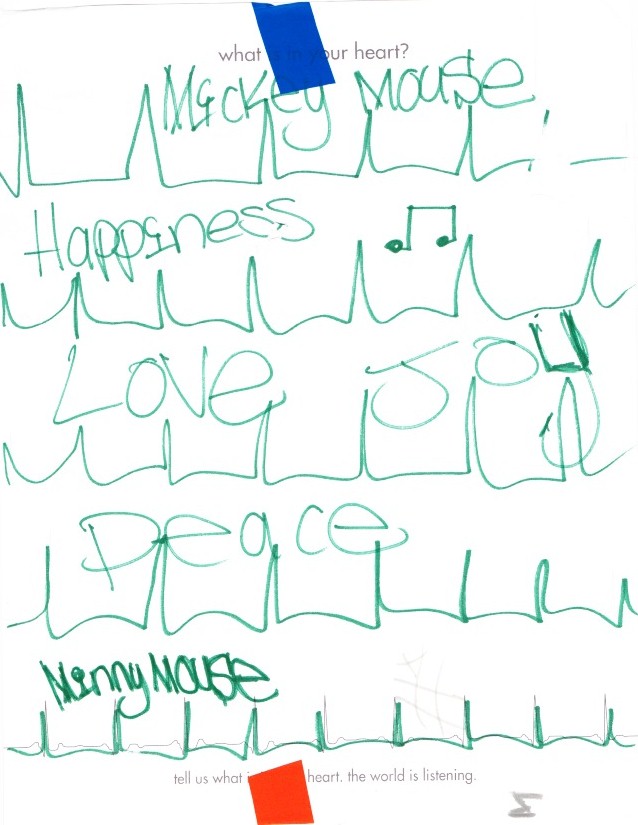 what is in your heart?
Mickey Mouse
Happiness
Love Joy
Peace
Minny Mouse
tell us what i heart. the world is listening.